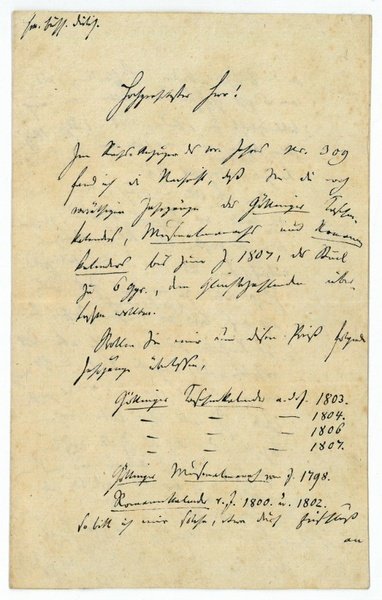 Hochgeehrtester Herr!
Im Reichs-Anzeiger des vor. Jahres Nr. 309
fand ich die Nachricht, daß Sie die noch
vorräthigen Jahrgänge des Göttinger Taschen-
kalenders, Musenalmanachs und Romanen
kalenders bis zum J. 1807, das Stück
zu 6 Ggr., den Liebhabern über-
lassen wollen.
Wollen Sie mir um diesen Preiß folgende
Jahrgänge überlassen,
Göttinger Taschenkalender a. d. J. 1803.
— — — 1804.
— — — 1806
— — — 1807.
Göttinger Musenalmanach vom J. 1798.
Romanenkalender v. J. 1800. u. 1802.
so bitte ich mir solche, etwa durch
an